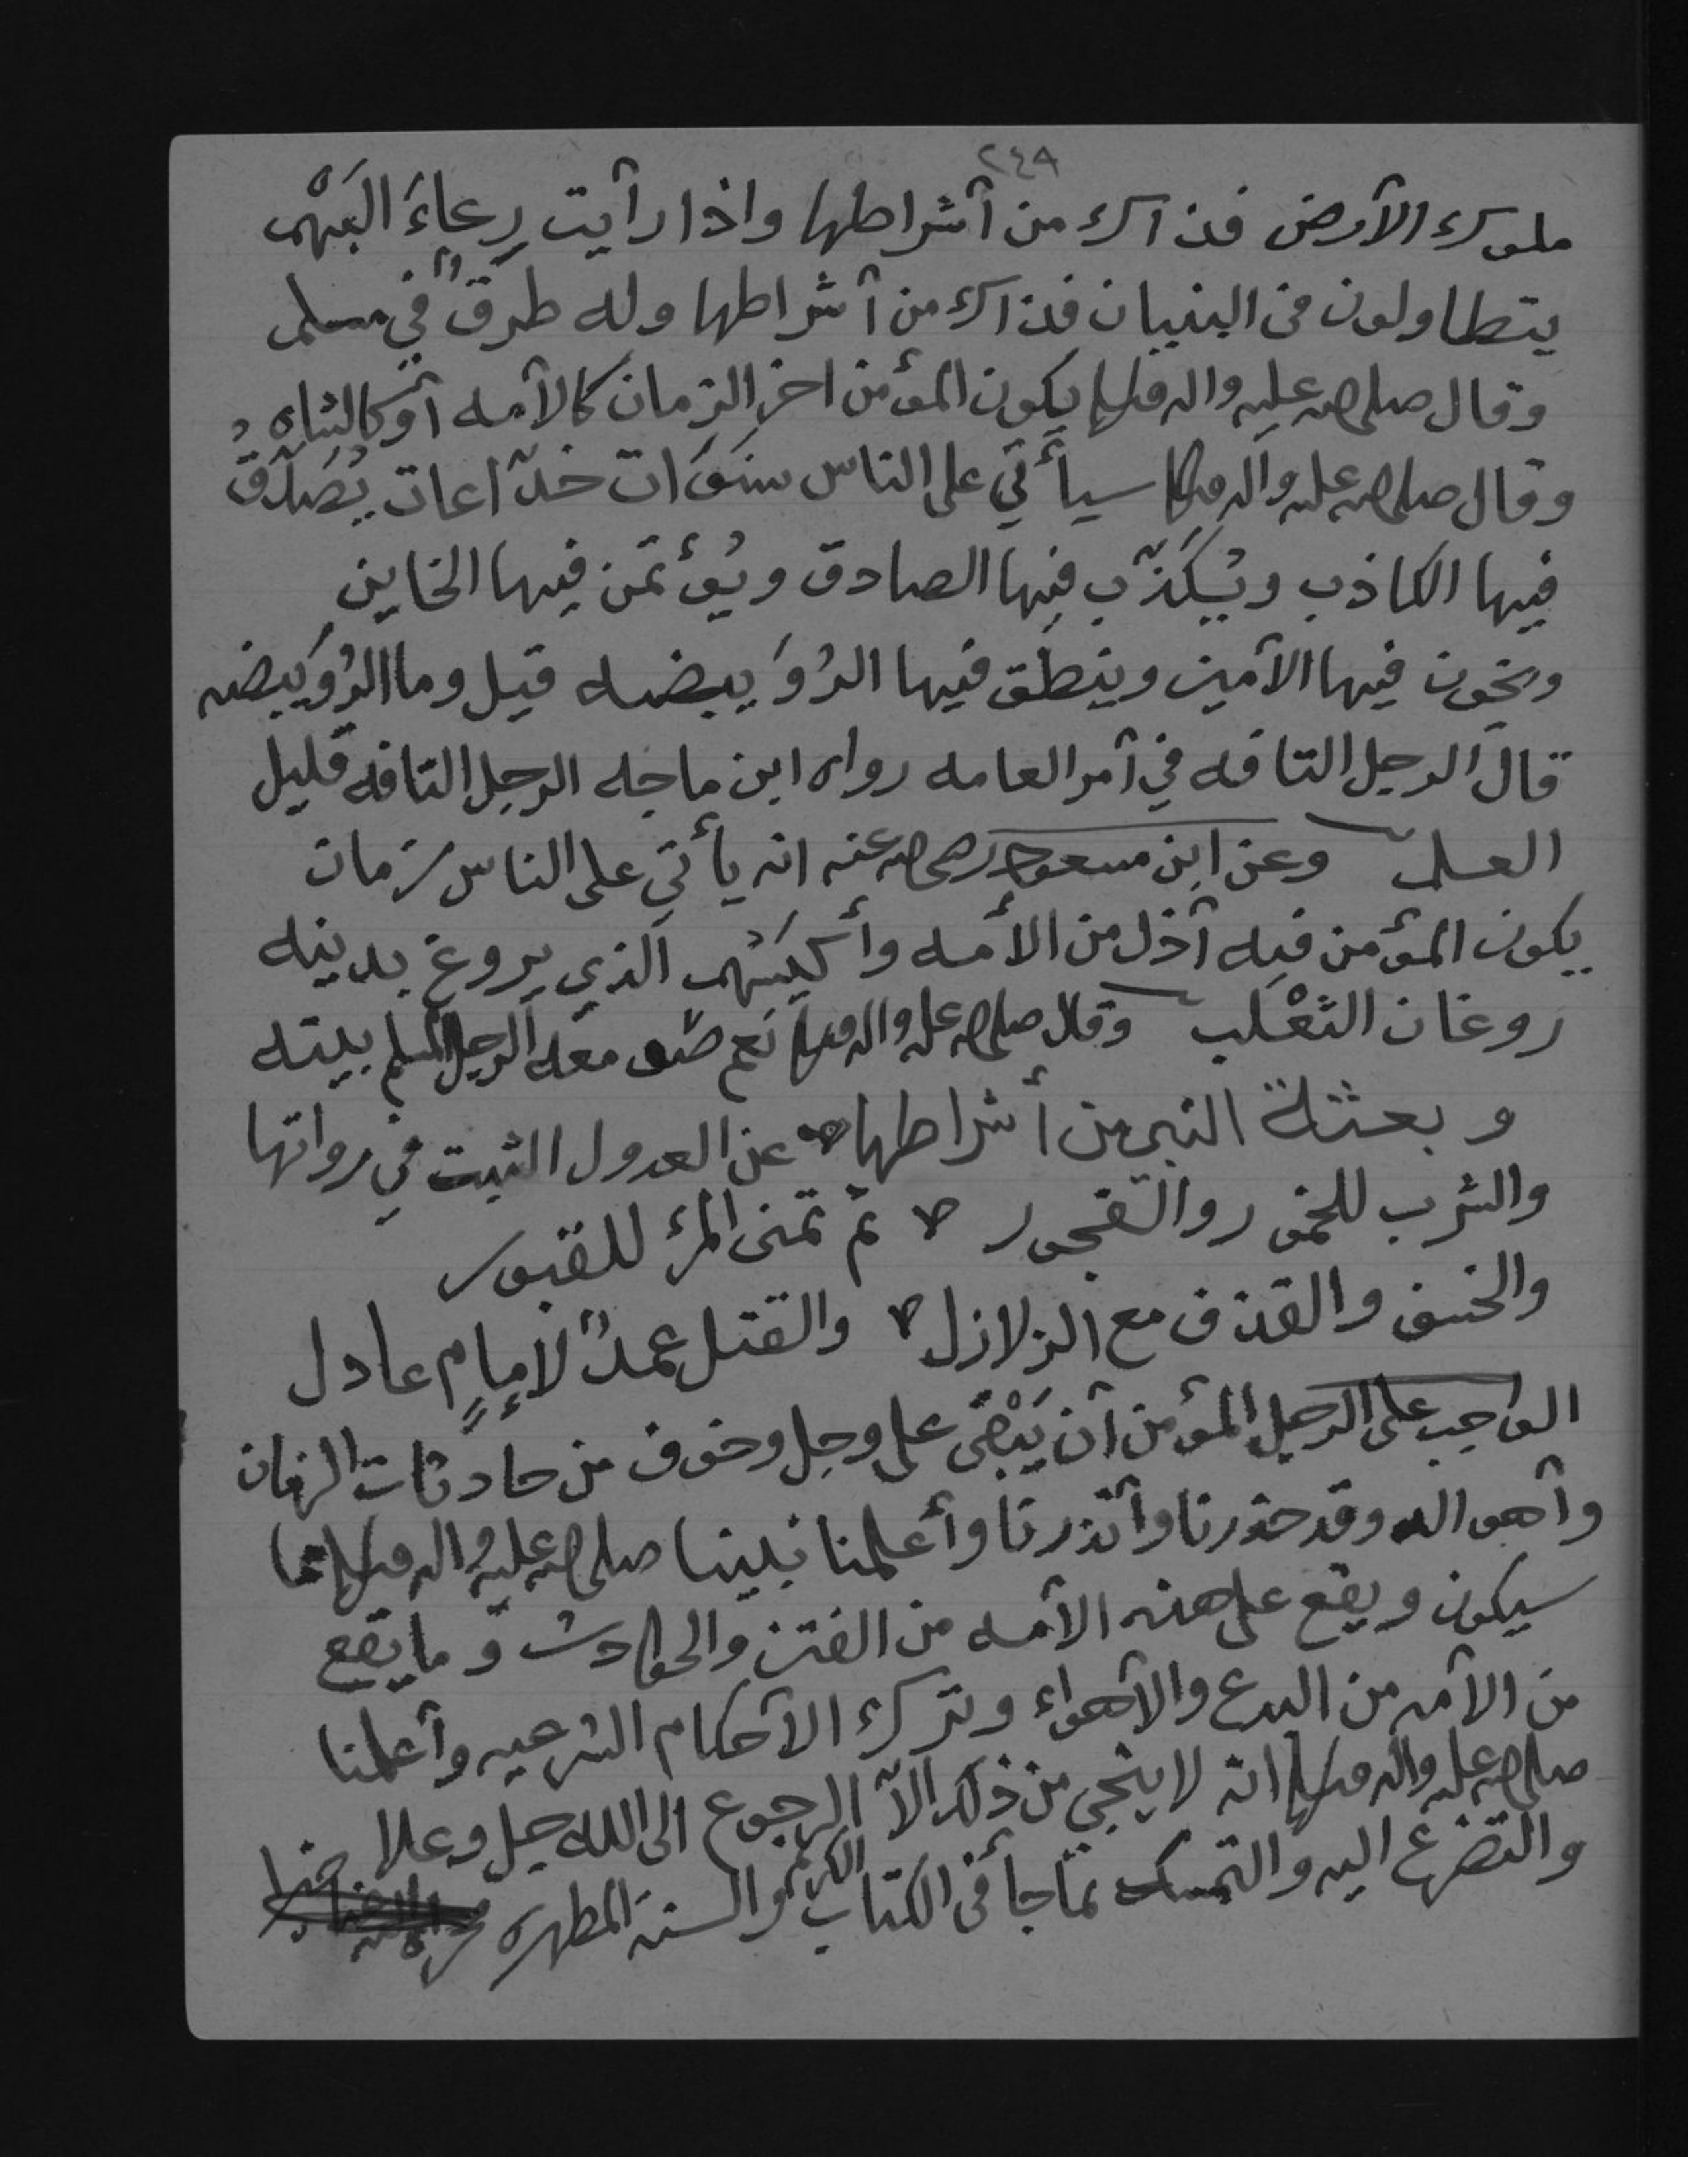 ٢٤٩
ملوك الأرض فذاك من أشراطها واذا رأيت رِعاءَ البَهْم
يتطاولون في البنيان فذاك من أشراطها وله طرقٌ في مسلم
وقال صلى الله عليه واله وسلم يكون المؤمن اخر الزمان كالأمه أو كالشاه
وقال صلى الله عليه واله وسلم سيأتي على الناس سنَوَات خدّاعات يُصَدَّقُ
فيها الكاذب ويُكذَّب فيها الصادق ويُؤتمَن فيها الخاين
ويخون فيها الأمين وينطق فيها الرُوَيبضه قيل وما الرُوَيبضه
قال الرجل التافه في أمر العامه رواه ابن ماجه الرجل التافه قليل
العلم وعن ابن مسعود رضي الله عنه انه يأتي على الناس زمان
يكون المؤمن فيه أذل من الأمه وأكيَسُهم الذي يروغ بدينه
روغان الثعْلب وقال صلى الله عليه واله وسلم نعم معه الرجل المسلم بيته
وبعثة النبي من أشراطها عن العدول الثبت في رواتها
والشرب للخمور والفجور ثم تمنى المرؤ للقبور
والخسف والقذف مع الزلازل والقتل عمدًا لإمامٍ عادل
الواجب على الرجل المؤمن أن يَبْقى على وجل وخوف من حادثات الزمان
وأهواله وقد حذرنا وأنذرنا وأعلمنا نبينا صلى الله عليه واله وسلم بما
سيكون ويقع على هذه الأمه من الفتن والحوادث وما يقع
من الأمه من البدع والأهواء وترك الأحكام الشرعيه وأعلمنا
صلى الله عليه واله وسلم انه لا ينجي من ذلك الاّ الرجوع الى الله جل وعلا
والتضرع اليه والتمسك بما جأ في الكتاب الكريم والسنه المطهره